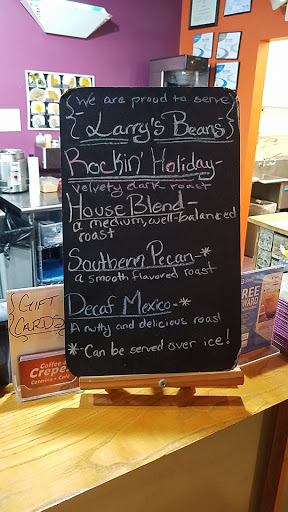 We are proud to serve
{Larry's Beans}
Rockin' Holiday-
velvety dark roast
House Blend-
a medium, well-balanced
roast
Southern Pecan-*
a smooth flavored roast
Decaf Mexico-*
A nutty and delicious roast
*-Can be served over ice!
{GIFT
CARDS
Coffee &
Crepe
Catering • Cafe
FREE